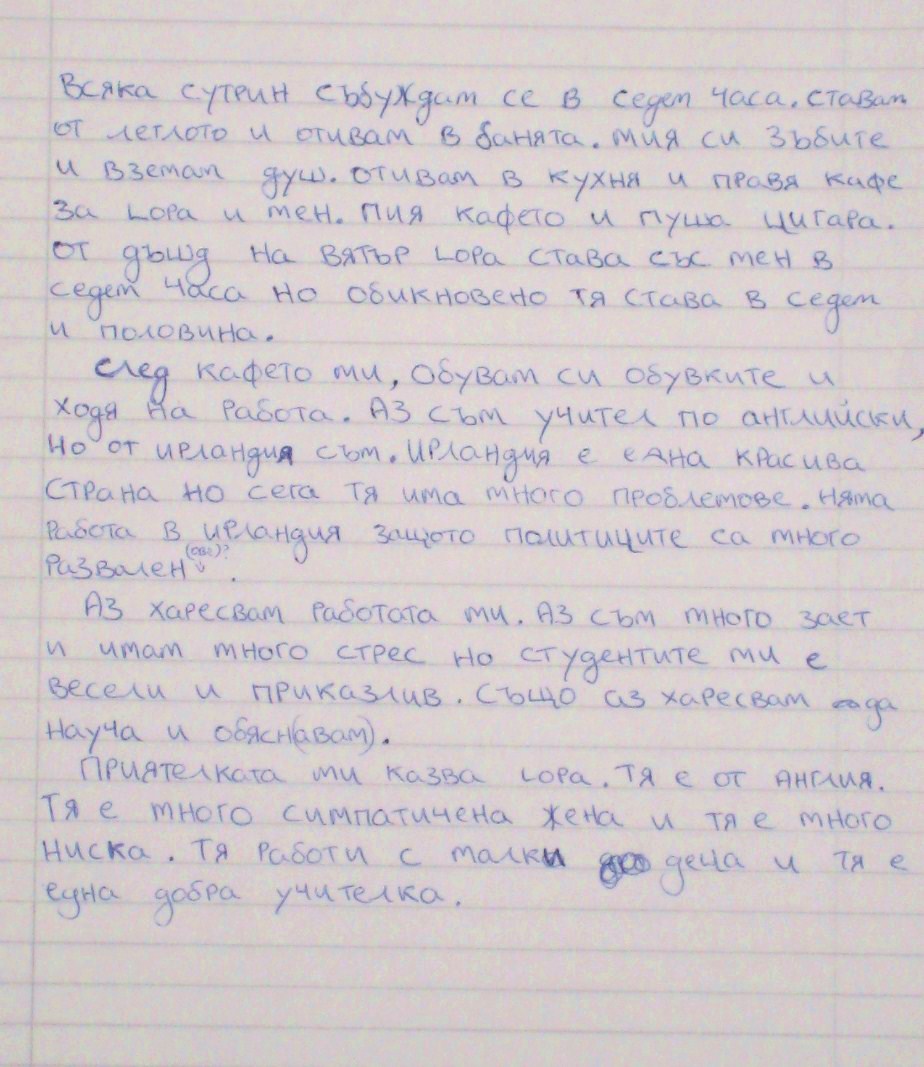 Всяка сутрин събуждам се в седем часа. ставам
от леглото и отивам в банята. мия си зъбите
и вземам душ. отивам в кухня и правя кафе
за Лора и мен. пия кафето и пуша цигара.
от дъщд на вятър Лора става със мен в
седем часа но обикновено тя става в седем
и половина.
след кафето ми, обувам си обувките и
ходя на работа. Аз съм учител по английски,
но от ирландия съм. Ирландия е една красива
страна но сега тя има много проблемове. няма
работа в ирландия защото политиците са много
развален .
Аз харесвам работата ми. Аз съм много зает
и имам много стрес но студентите ми е
весели и приказлив. също аз харесвам да
науча и обясн(авам).
Приятелката ми казва Лора. тя е от Англия.
Тя е много симпатичена жена и тя е много
ниска. тя работи с малки деца и тя е
една добра учителка.